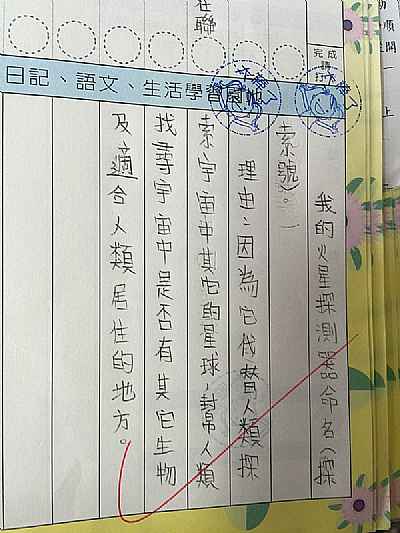 在聯
完成
請
打
日記、語文、生活學習
我的火星探測器命名(探
索號)。
理由:因為它代替人類探
索宇宙中其它的星球,幫人類
找尋宇宙中是否有其它生物
及適合人類居住的地方。